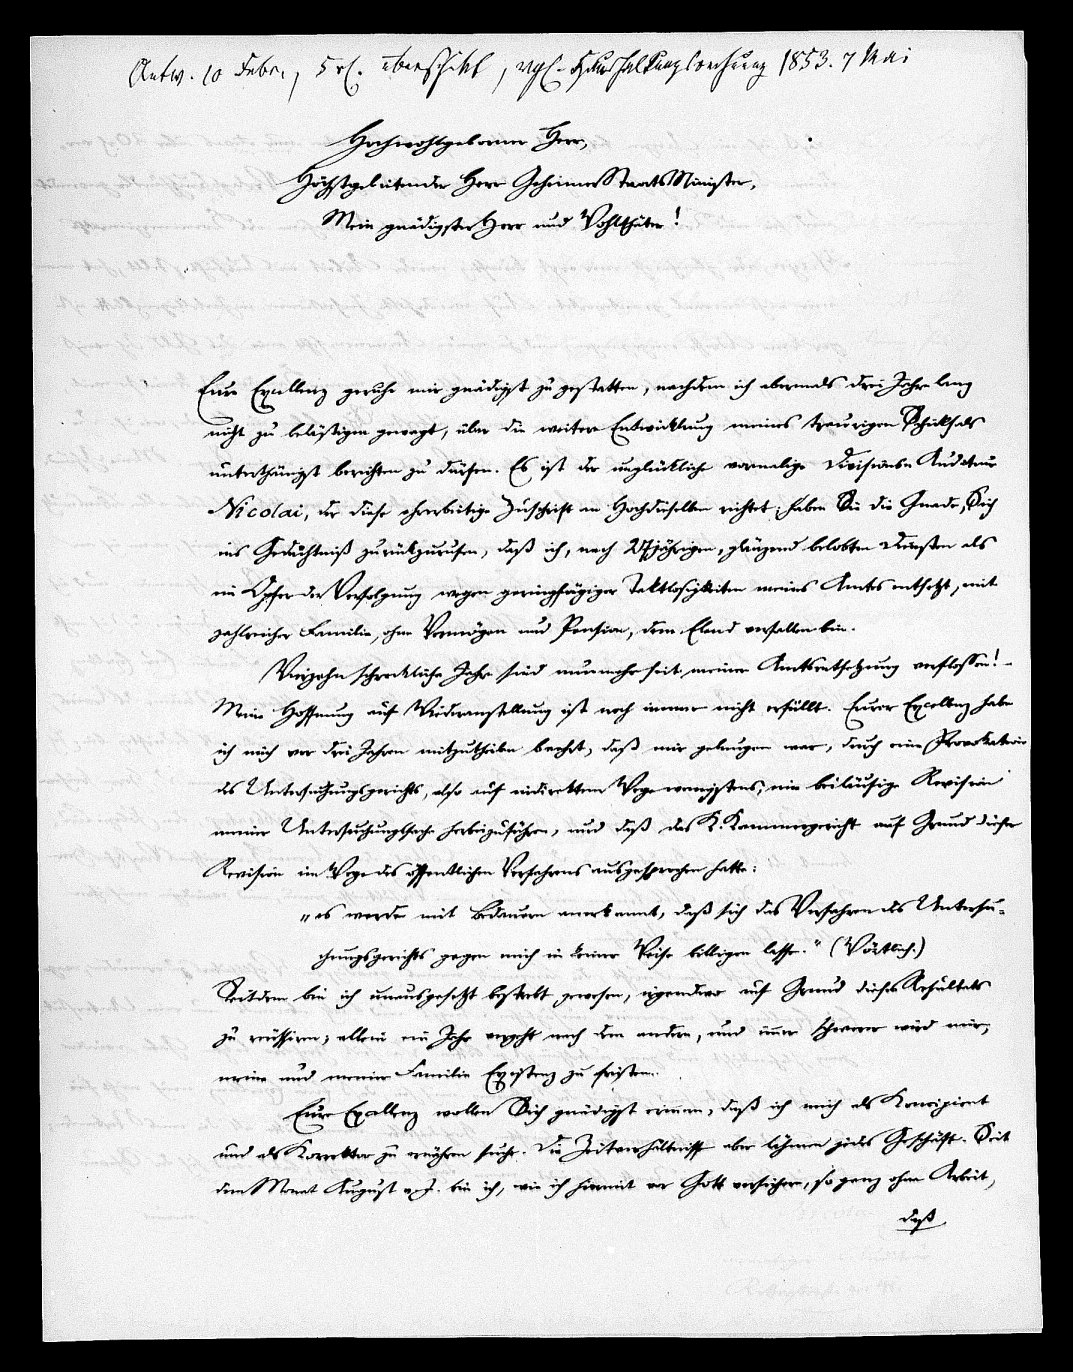 Antw. 10 Febr., 5 rl. überschikt, vgl. Haushaltungsrechnung 1853. 7 Mai
Hochwohlgeborner Herr,
Höchstgebietender Herr Geheimer Staats Minister,
Mein gnädigster Herr und Wohlthäter!
Eure Excellenz geruhe mir gnädigst zu gestatten, nachdem ich abermals drei Jahre lang
nicht zu belästigen gewagt, über die weitere Entwicklung meines traurigen Schicksals
unterthänigst berichten zu dürfen. Es ist der unglückliche vormalige Divisions Auditeur
Nicolai, der diese ehrerbietige Zuschrift an Hochdieselben richtet; haben Sie die Gnade, Sich
ins Gedächtniß zurückzurufen, daß ich, nach 27jährigen, glänzend belobten Diensten als
ein Opfer der Verfolgung wegen geringfügiger Taktlosigkeiten meines Amtes entsetzt, mit
zahlreicher Familie, ohne Vermögen und Pension, dem Elend verfallen bin.
Vierzehn schreckliche Jahre sind nunmehr seit meiner Amtsentsetzung verflossen! –
Meine Hoffnung auf Wiederanstellung ist noch immer nicht erfüllt. Eurer Excellenz habe
ich mich vor drei Jahren mitzutheilen beehrt, daß mir gelungen war, durch eine Provokation
des Untersuchungsgerichts, also auf indirektem Wege wenigstens, eine beiläufige Revision
meiner Untersuchungssache herbeizuführen, und daß das K. Kammergericht auf Grund dieser
Revision im Wege des öffentlichen Verfahrens ausgesprochen hatte:
„es werde mit Bedauern anerkannt, daß sich das Verfahren des Untersu-
chungsgerichts gegen mich in keiner Weise billigen lasse." (Wörtlich.)
Seitdem bin ich unausgesetzt bestrebt gewesen, irgendwo auf Grund dieses Resultats
zu reüssiren; allein ein Jahr vergeht nach dem andern, und immer schwerer wird mir,
meine und meiner Familie Existenz zu fristen.
Eure Excellenz wollen Sich gnädigst erinnern, daß ich mich als Koncipient
und als Korrektor zu ernähren suche. Die Zeitverhältnisse aber lähmen jedes Geschäft. Seit
dem Monat August v. J. bin ich, wie ich hiermit vor Gott versichere, so ganz ohne Arbeit,
daß